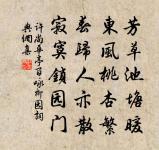 芳草池塘暖
東風桃杏繁
春歸人亦散
寂寞鎖园門
許尚華亭百詠柳园詞